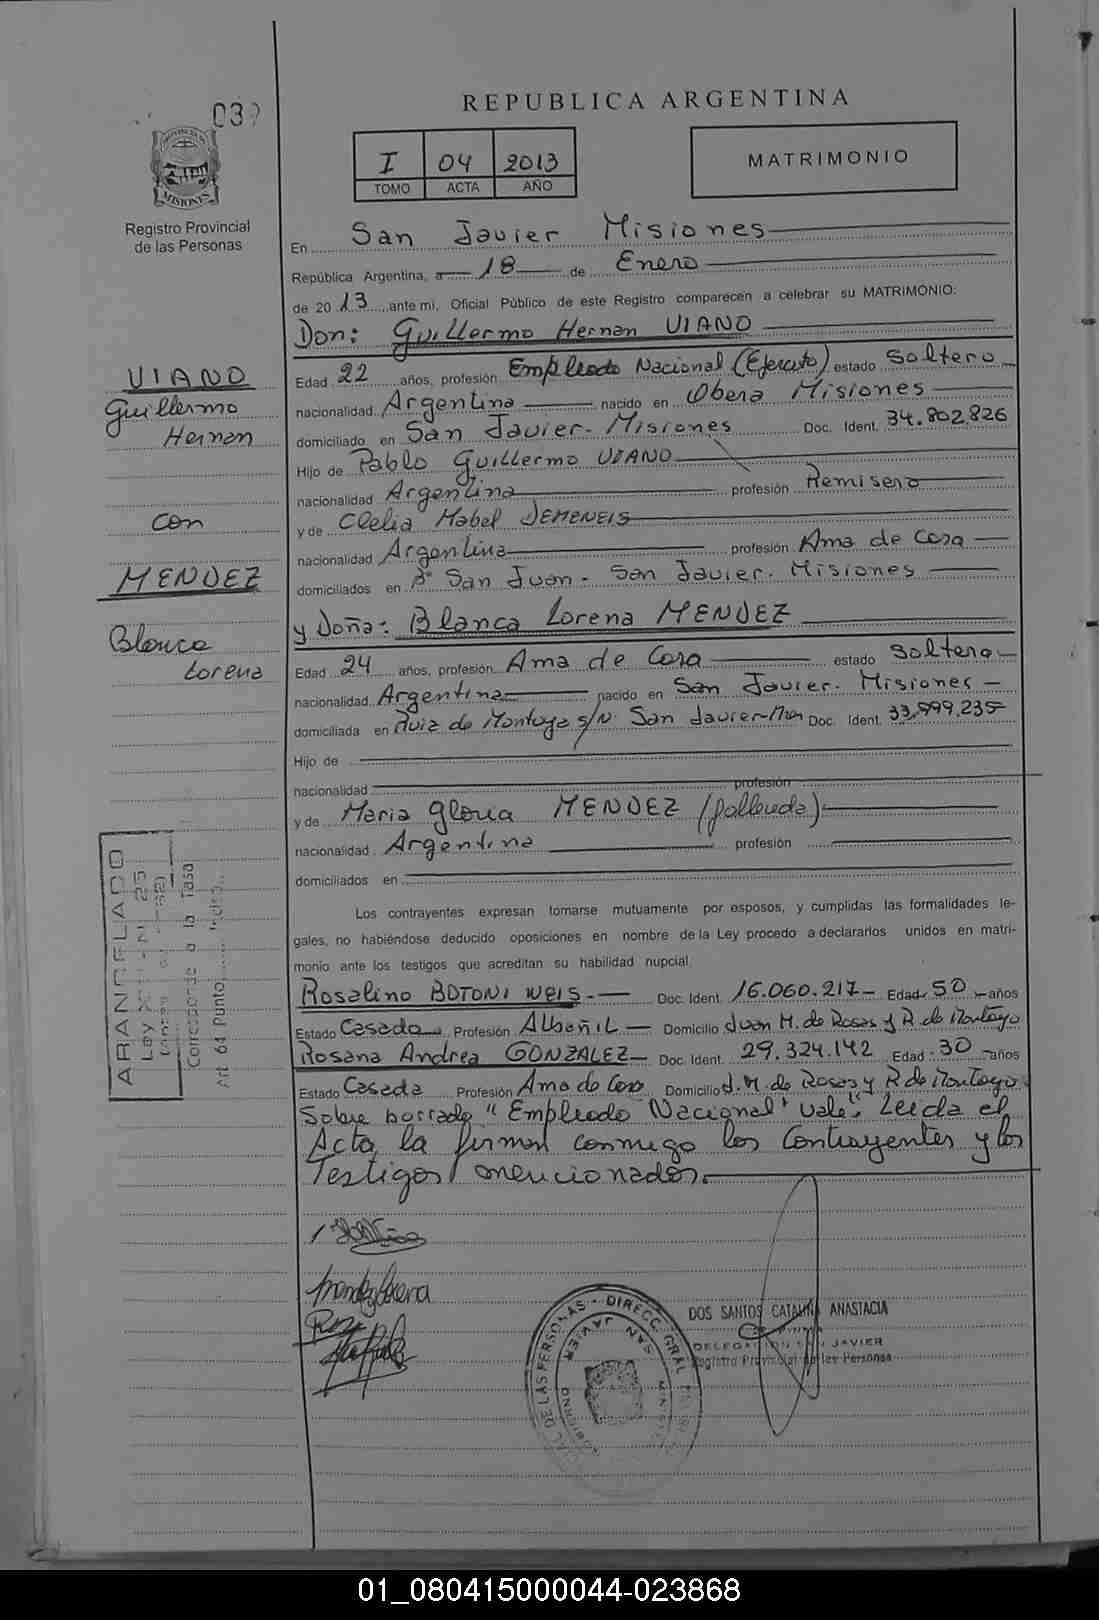 REPUBLICA ARGENTINA
03
PROVINCIA DE
MISIONES
Registro Provincial
de las Personas
I 04 2013
TOMO ACTA AÑO
MATRIMONIO
En San Javier Misiones
República Argentina, a 18 de Enero
de 2013 ante mi, Oficial Público de este Registro comparecen a celebrar su MATRIMONIO:
Don: Guillermo Hernan VIANO
VIANO
Guillermo
Hernan
con
MENDEZ
Blanca
Lorena
Edad 22 años, profesión Empleado Nacional (Ejercito) estado Soltero
nacionalidad Argentina nacido en Obera Misiones
domiciliado en San Javier - Misiones Doc. Ident. 34.802.826
Hijo de Pablo Guillermo VIANO
nacionalidad Argentina profesión Remisero
y de Clelia Mabel DEMENEIS
nacionalidad Argentina profesión Ama de Casa
domiciliados en B° San Juan - San Javier. Misiones
y Doña: Blanca Lorena MENDEZ
Edad 24 años, profesión Ama de Casa estado Soltera
nacionalidad Argentina nacido en San Javier. Misiones
domiciliada en Ruiz de Montoya s/n San Javier-Mnes Doc. Ident. 33.999.235
Hijo de
nacionalidad profesión
y de Maria Gloria MENDEZ (fallecida)
nacionalidad Argentina profesión
domiciliados en
Los contrayentes expresan tomarse mutuamente por esposos, y cumplidas las formalidades le-
gales, no habiéndose deducido oposiciones en nombre de la Ley procedo a declararlos unidos en matri-
monio ante los testigos que acreditan su habilidad nupcial.
Rosalino BOTONI WEIS Doc. Ident. 16.060.217 Edad 50 años
Estado Casado Profesión Albañil Domicilio Juan M. de Rosas y R. de Montoya
Rosana Andrea GONZALEZ Doc. Ident. 29.324.142 Edad 30 años
Estado Casada Profesión Ama de Casa Domicilio J. M. de Rosas y R de Montoya
Sobre borrado "Empleado Nacional" vale. Leida el
Acta, la firman conmigo los Contrayentes y los
Testigos mencionados.
ARANCELADO
Ley
Corresponde a la Tasa
Art. 64 Punto Inciso
Mendez Lorena
DOS SANTOS CATALINA ANASTACIA
DELEGACION SAN JAVIER
Registro Provincial de las Personas
DE LAS PERSONAS - DIRECC. GRAL
SAN JAVIER
01_080415000044-023868